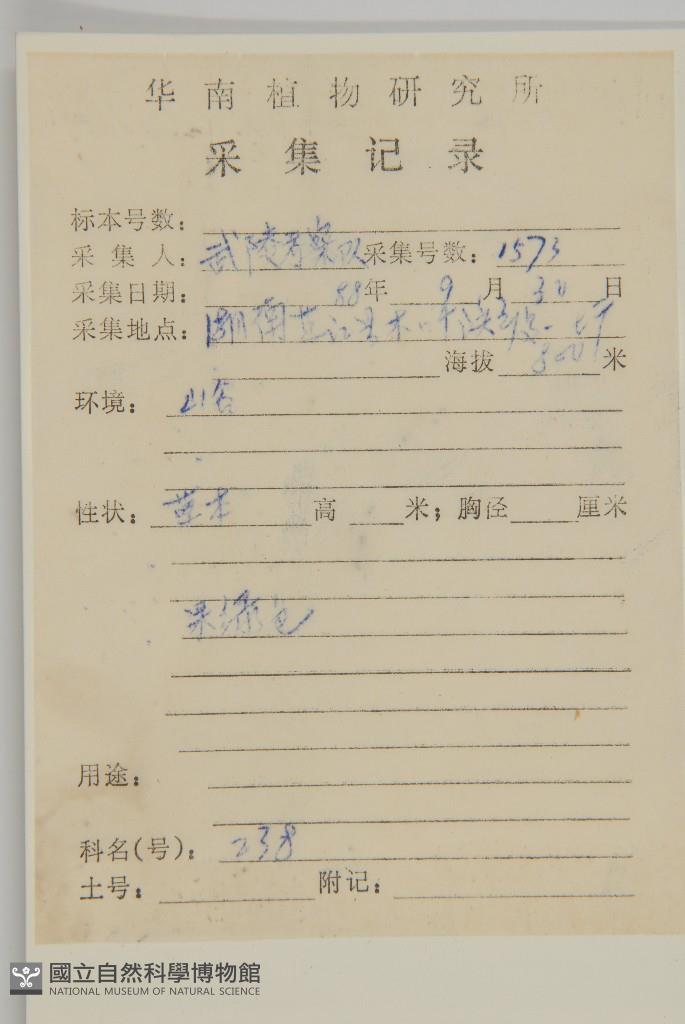 华南植物研究所
采集记录
标本号数:
采集人: 武陵考察队 采集号数: 1573
采集日期: 88年 9月 30日
采集地点: 湖南芷江县
海拔 800 米
环境: 山谷
性状: 草本 高 米; 胸径 厘米
果绿色
用途:
科名(号): 238
土号: 附记:
國立自然科學博物館
NATIONAL MUSEUM OF NATURAL SCIENCE